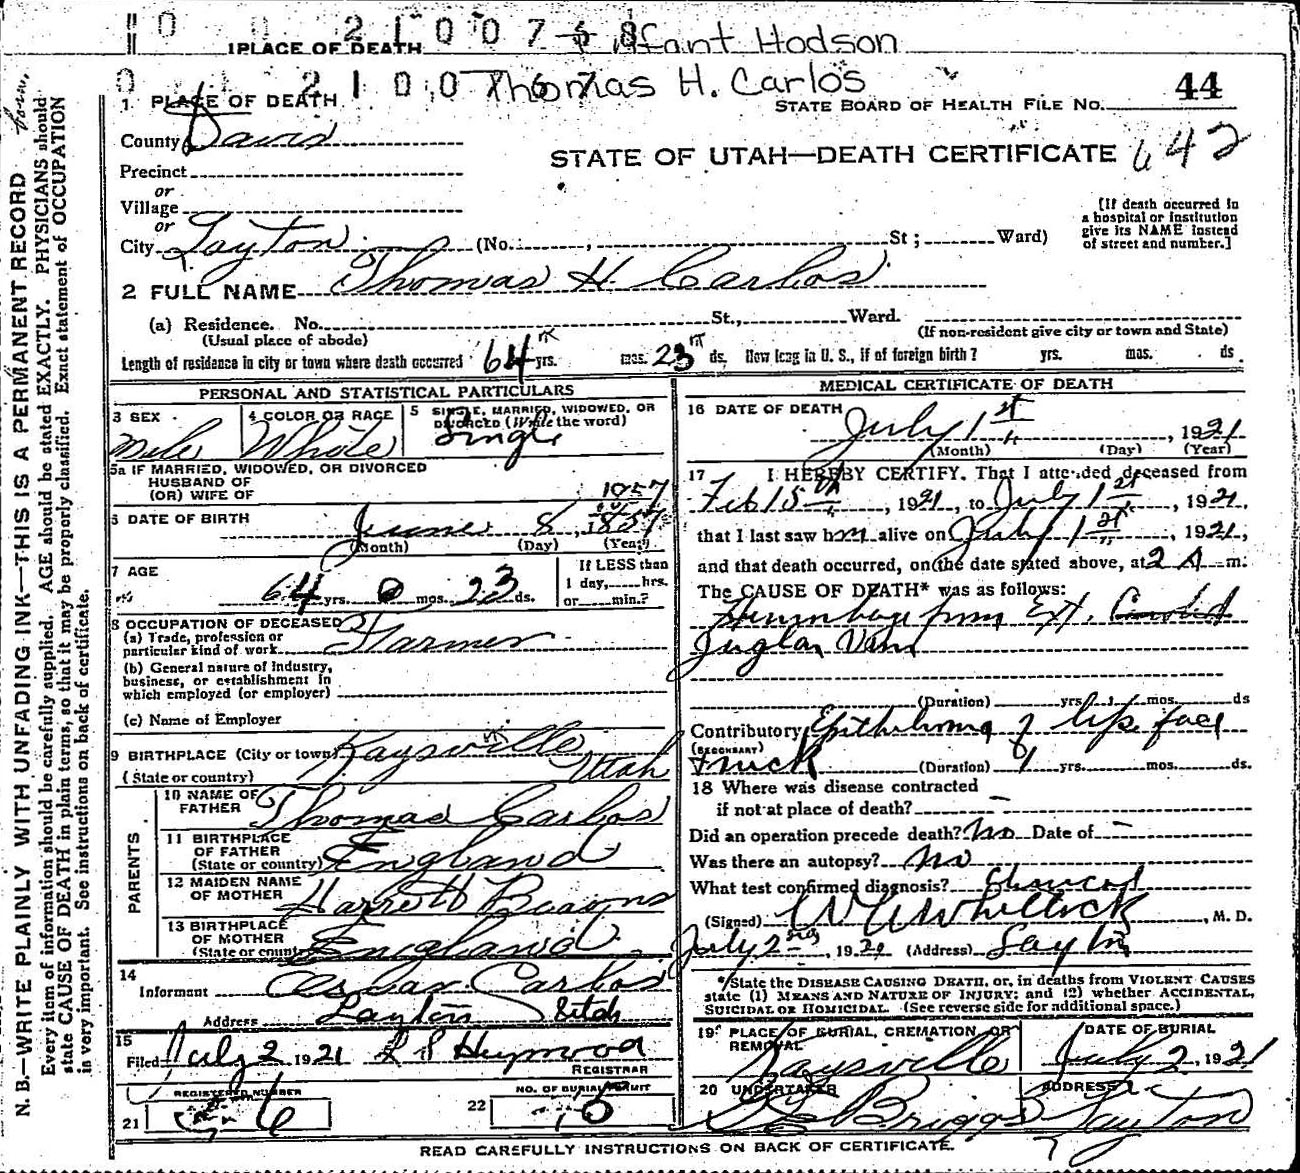 0 0 2 1 0 0 7 5 8 Infant Hodson
1 PLACE OF DEATH
0 2 1 0 0 7 6 7 Thomas H. Carlos
1 PLACE OF DEATH
STATE BOARD OF HEALTH FILE NO. 44
County Davis
STATE OF UTAH—DEATH CERTIFICATE 642
Precinct
or
Village
or
City Layton (No. , St ; Ward)
[If death occurred in
a hospital or institution
give its NAME instead
of street and number.]
2 FULL NAME Thomas H. Carlos
(a) Residence. No. St., Ward.
(Usual place of abode)
(If non-resident give city or town and State)
Length of residence in city or town where death occurred 64 yrs. mos. 23 ds. How long in U. S., if of foreign birth? yrs. mos. ds.
PERSONAL AND STATISTICAL PARTICULARS
3 SEX Male
4 COLOR OR RACE White
5 SINGLE, MARRIED, WIDOWED, OR
DIVORCED (Write the word) Single
5a IF MARRIED, WIDOWED, OR DIVORCED
HUSBAND OF
(OR) WIFE OF
1857
6 DATE OF BIRTH June 8, 1857
(Month) (Day) (Year)
7 AGE 64 yrs. 0 mos. 23 ds.
If LESS than
1 day, hrs.
or min.?
8 OCCUPATION OF DECEASED
(a) Trade, profession or
particular kind of work Farmer
(b) General nature of industry,
business, or establishment in
which employed (or employer)
(c) Name of Employer
9 BIRTHPLACE (City or town) Kaysville
(State or country) Utah
PARENTS
10 NAME OF
FATHER Thomas Carlos
11 BIRTHPLACE
OF FATHER
(State or country) England
12 MAIDEN NAME
OF MOTHER Harrett
13 BIRTHPLACE
OF MOTHER
(State or country) England
14
Informant Carlos
Address Layton Utah
15
Filed July 2 1921 L S Heywood
REGISTRAR
REGISTERED NUMBER
21 6
NO. OF BURIAL PERMIT
22 5
MEDICAL CERTIFICATE OF DEATH
16 DATE OF DEATH July 1st, 1921
(Month) (Day) (Year)
17 I HEREBY CERTIFY. That I attended deceased from
Feb 15th, 1921, to July 1st, 1921,
that I last saw him alive on July 1st, 1921,
and that death occurred, on the date stated above, at 2 A m.
The CAUSE OF DEATH* was as follows:
Hemmhage from Ext. Carotid
Juglar Vein
(Duration) yrs. mos. ds
Contributory Epithelioma of lip face
(SECONDARY)
(Duration) yrs. mos. ds.
18 Where was disease contracted
if not at place of death? —
Did an operation precede death? No Date of —
Was there an autopsy? no
What test confirmed diagnosis?
(Signed) Whitlock, M. D.
July 2nd, 1921 (Address) Layton
*State the DISEASE CAUSING DEATH, or, in deaths from VIOLENT CAUSES
state (1) MEANS AND NATURE OF INJURY; and (2) whether ACCIDENTAL,
SUICIDAL OR HOMICIDAL. (See reverse side for additional space.)
19 PLACE OF BURIAL, CREMATION, OR
REMOVAL Kaysville
DATE OF BURIAL
July 2, 1921
20 UNDERTAKER Briggs
ADDRESS Layton
READ CAREFULLY INSTRUCTIONS ON BACK OF CERTIFICATE.
N. B.—WRITE PLAINLY WITH UNFADING INK—THIS IS A PERMANENT RECORD
Every item of information should be carefully supplied. AGE should be stated EXACTLY. PHYSICIANS should
state CAUSE OF DEATH in plain terms, so that it may be properly classified. Exact statement of OCCUPATION
is very important. See instructions on back of certificate.